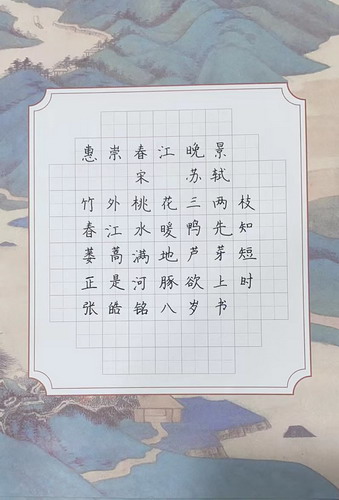 惠崇春江晚景
宋 苏轼
竹外桃花三两枝
春江水暖鸭先知
蒌蒿满地芦芽短
正是河豚欲上时
张皓铭八岁书